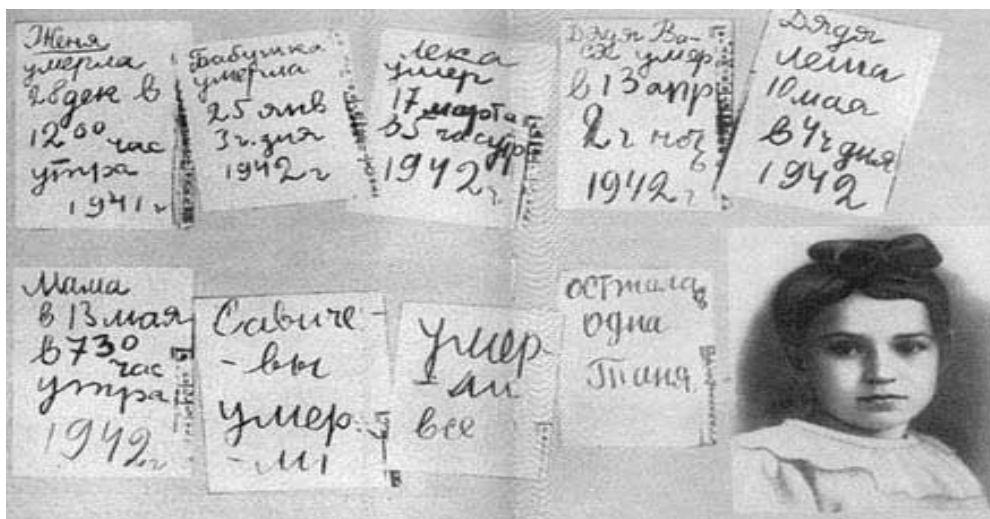 Женя
умерла
28 дек в
12 00 час
утра
1941 г
Бабушка
умерла
25 янв
3 ч. дня
1942 г
Лека
умер
17 марта
в 5 час утр
1942 г.
Дядя Ва-
ся умер
в 13 апр
2 ч ночь
1942 г
Дядя
Леша
10 мая
в 4 ч дня
1942
Мама
в 13 мая
в 7 30
час
утра
1942 г
Савиче-
-вы
умер
-ли
умер
-ли
все
осталась
одна
Таня